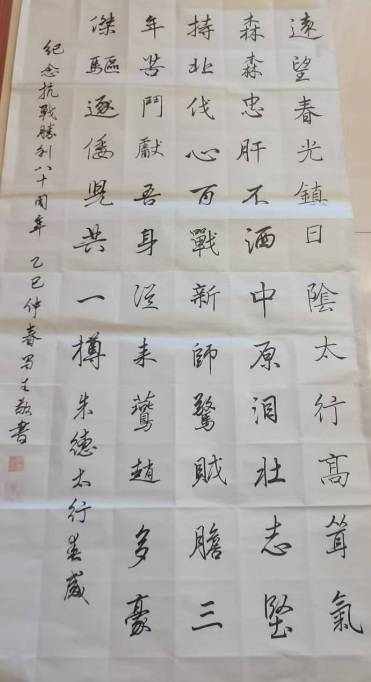 遠望春光鎮日陰太行高聳氣
森森忠肝不洒中原泪壯志堅
持北伐心百戰新師驚賊膽三
年苦鬥獻吾身從来鷰趙多豪
傑驅逐倭児共一樽朱德太行春感
紀念抗戰勝利八十周年 乙巳仲春敬書